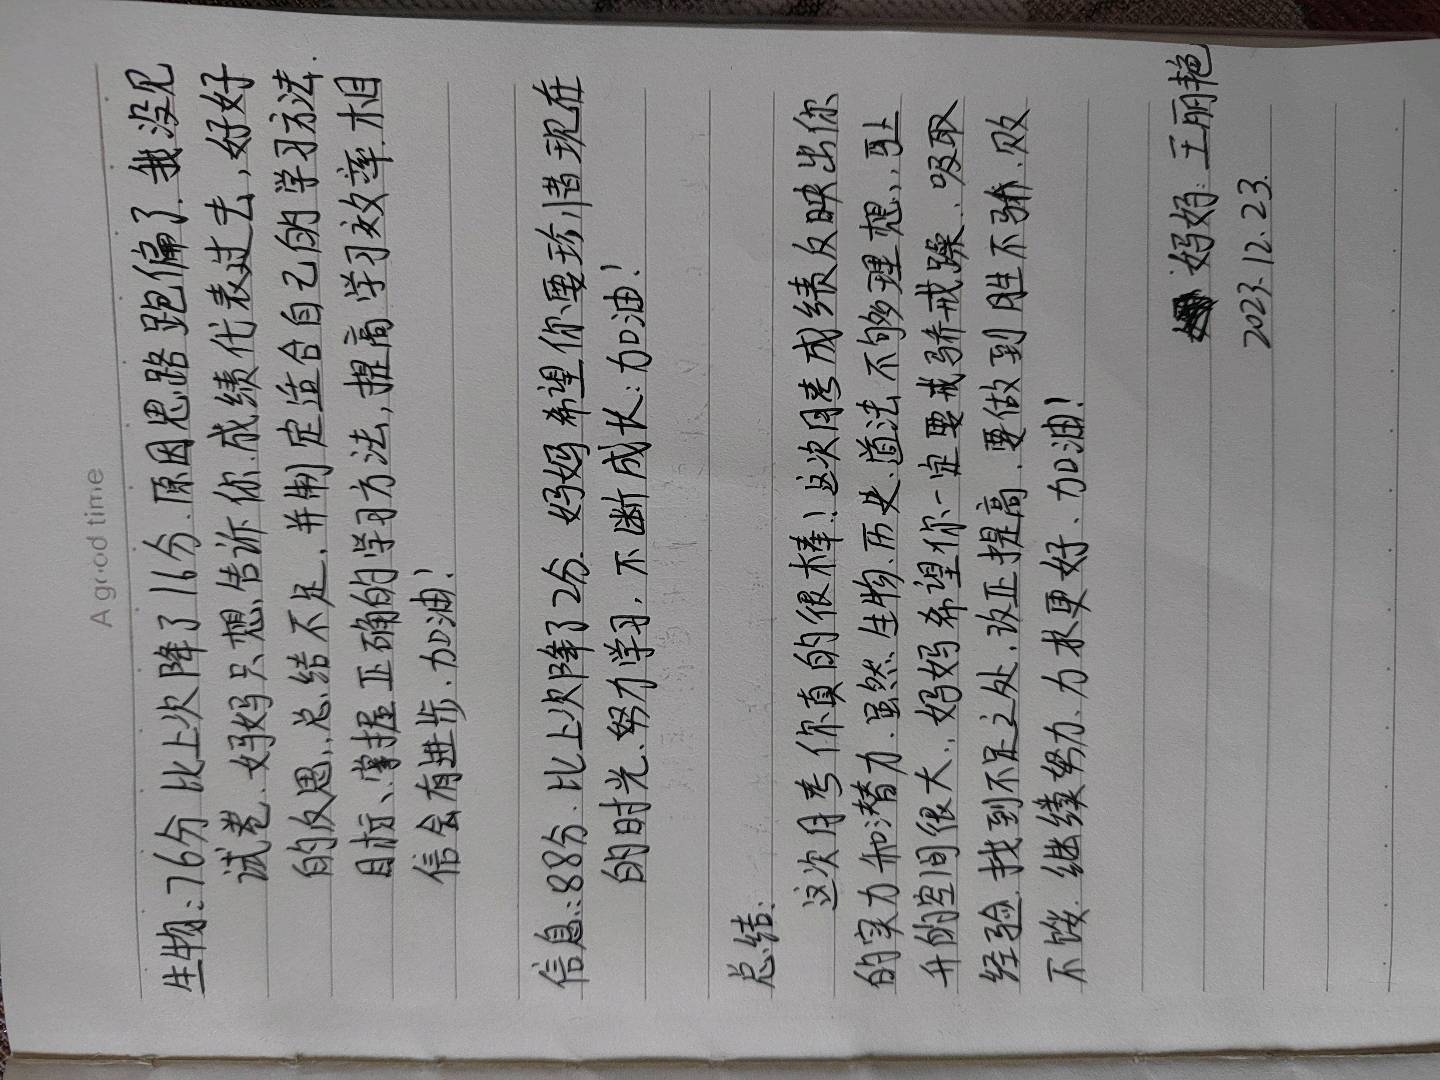 A good time
生物:76分比上次降了16分.原因思路跑偏了.我没见
试卷.妈妈只想告诉你.成绩代表过去,好好
的反思,总结不足,并制定适合自己的学习方法.
目标、掌握正确的学习方法,提高学习效率.相
信会有进步.加油!
信息:88分.比上次降了2分.妈妈希望你要珍惜现在
的时光.努力学习,不断成长:加油!
总结:
这次月考你真的很棒!这次月考成绩反映出你
的实力和潜力.虽然,生物、历史、道法不够理想,
升的空间很大,妈妈希望你一定要戒骄戒躁、吸取
经验.找到不足之处,改正提高.要做到胜不骄.败
不馁.继续努力、力求更好.加油!
妈妈:王丽艳
2023.12.23.